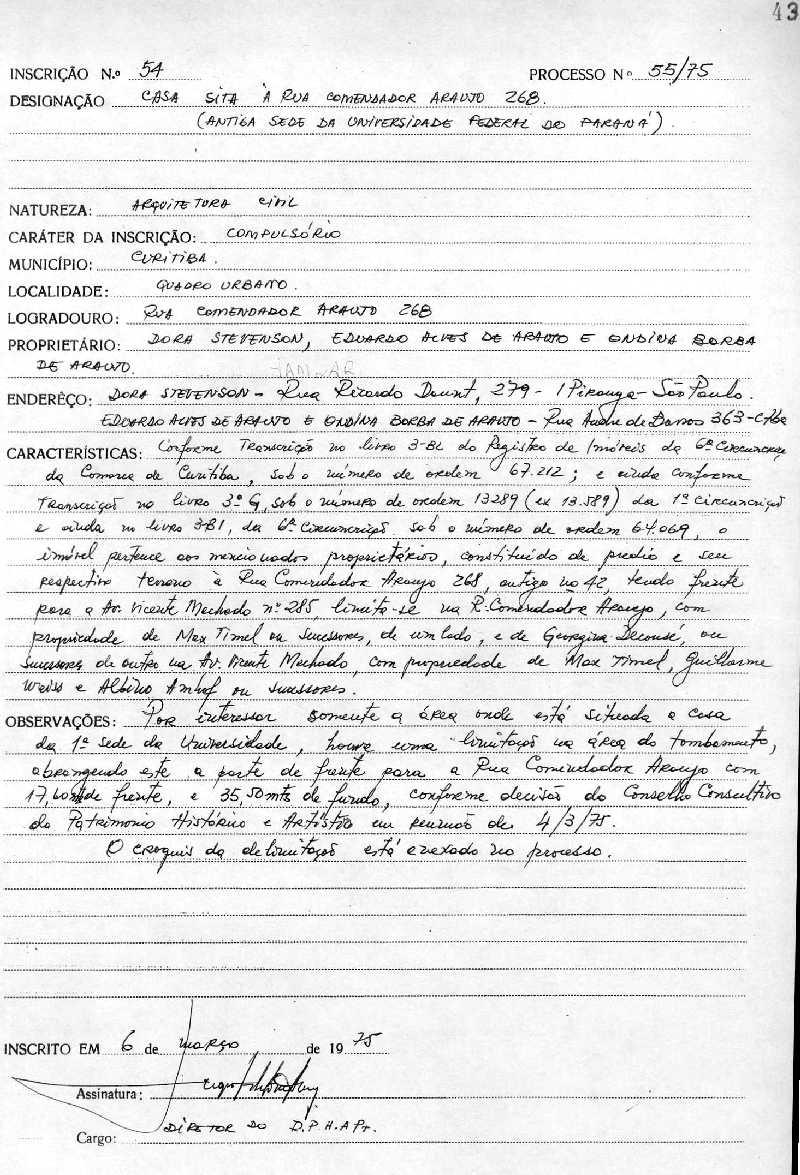 43
INSCRIÇÃO N.º 54 PROCESSO Nº 55/75
DESIGNAÇÃO CASA SITA À RUA COMENDADOR ARAUJO 268.
(ANTIGA SEDE DA UNIVERSIDADE FEDERAL DO PARANÁ).
NATUREZA: ARQUITETURA CIVIL
CARÁTER DA INSCRIÇÃO: COMPULSÓRIO
MUNICÍPIO: CURITIBA.
LOCALIDADE: QUADRO URBANO.
LOGRADOURO: RUA COMENDADOR ARAUJO 268
PROPRIETÁRIO: DORA STEVENSON, EDUARDO ALVES DE ARAUJO E ONDINA BORBA
DE ARAUJO.
ENDERÊÇO: DORA STEVENSON - Rua Ricardo Daunt, 279 - Ipiranga - São Paulo.
EDUARDO ALVES DE ARAUJO E ONDINA BORBA DE ARAUJO - Rua André de Barros 363 -
CARACTERÍSTICAS: Conforme Transcrição no livro 3-BL do Registro de Imóveis da 6ª
da Comarca de Curitiba, sob o número de ordem 67.212; e ainda conforme
Transcrição no livro 3º G, sob o número de ordem 13289 (ex 13.589) da 1ª Circunscrição
e ainda no livro 3-BI, da 6ª Circunscrição sob o número de ordem 64.069, o
imóvel pertence aos mencionados proprietários, constituído de predio e seu
respectivo terreno à Rua Comendador Araujo 268, antigo nº 42, tendo frente
para a Av. Vicente Machado nº 285 limita-se na R. Comendador Araujo, com
propriedade de Max Timel ou sucessores, de um lado, e de Georgina ou
sucessores de outro na Av. Vicente Machado, com propriedade de Max Timel, Guilherme
Weiss e Albino ou sucessores.
OBSERVAÇÕES: Por interessar somente a área onde está situada a casa
da 1ª sede da Universidade, houve uma limitação na área do tombamento,
abrangendo este a parte de frente para a Rua Comendador Araujo com
17,60mts de frente, e 35,50mts de fundo, conforme decisão do Conselho Consultivo
do Patrimonio Histórico e Artístico em reunião de 4/3/75.
O croquis da delimitação está anexado no processo.
INSCRITO EM 6 de março de 1975
Assinatura:
Cargo: DIRETOR DO D.P.H.A.Pr.